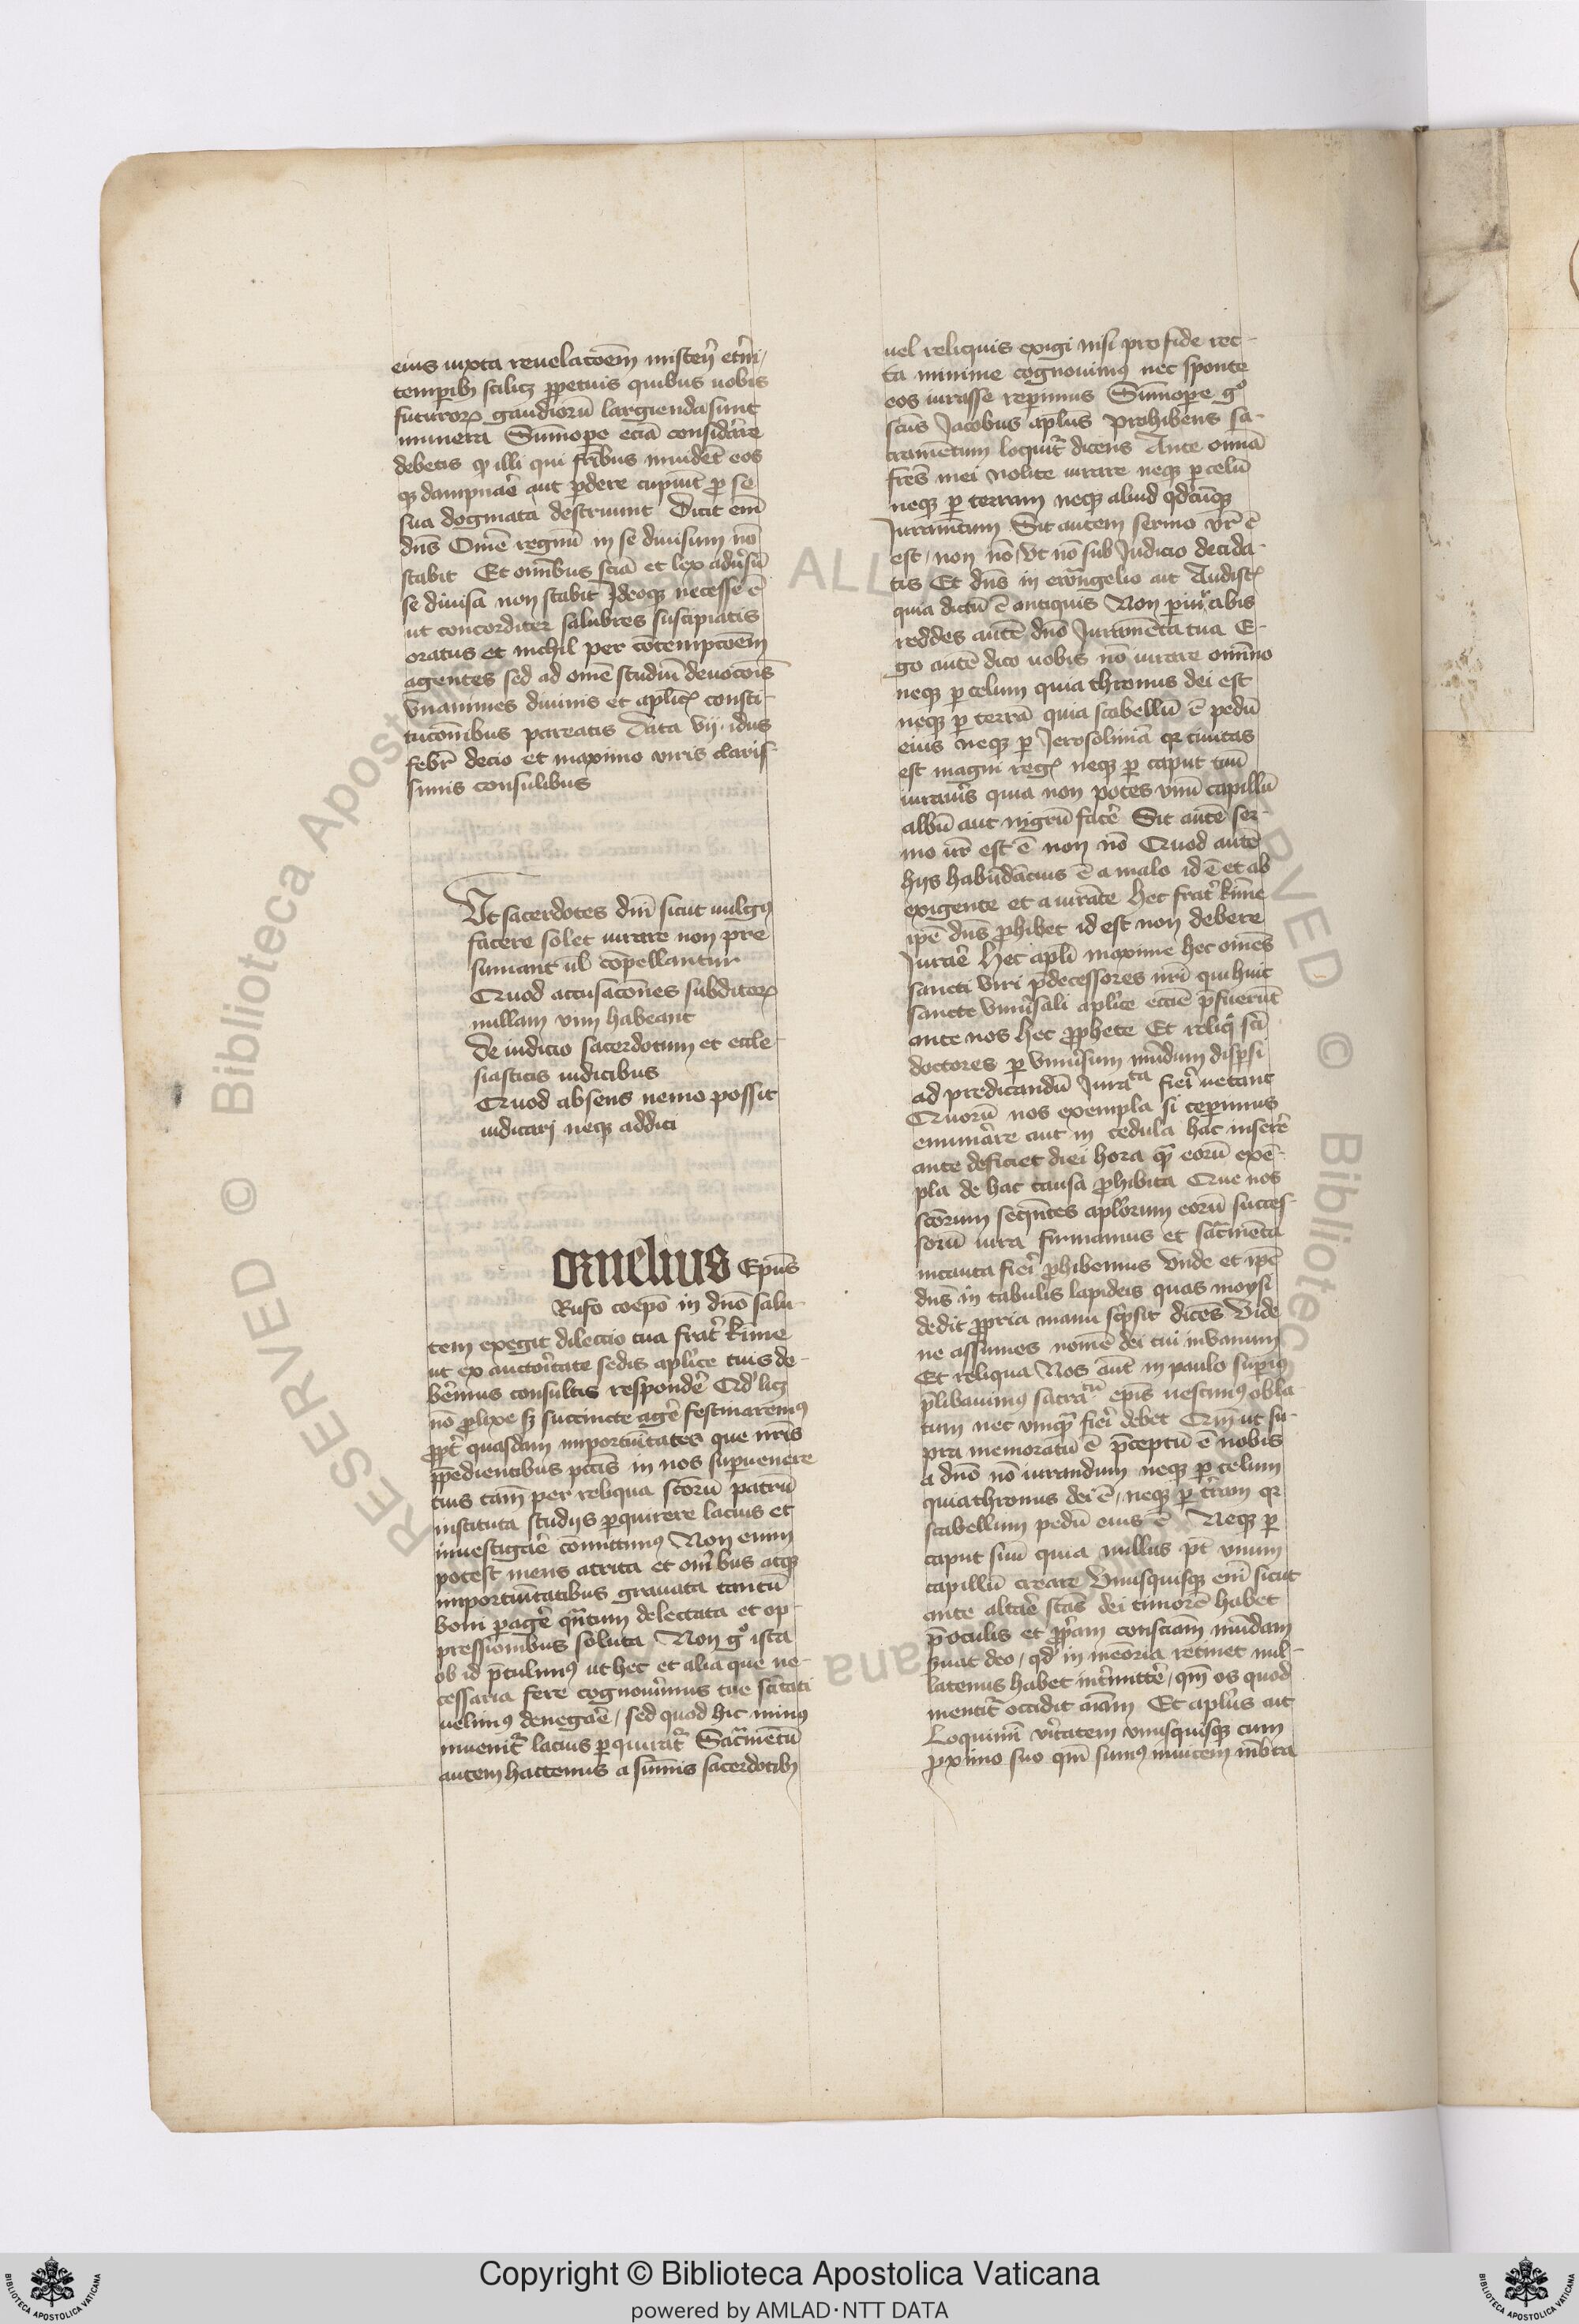 eius iuxta reuelac̄oem misterij et̄ni /
tempib₉ scilicꝫ ꝑpetuis quibus uobis
futuroꝝ gaudiorū largienda sunt
munera Sūmope eciā considāre
debetis ꝙ illi qui fr̄ibus inuidēt eos
qꝫ dampnar̄e aut ꝑdere cupiūt ꝓ se
sua dogmata destruunt Dicit em̄
dn̄s Om̄e regnū in se diuisum nō
stabit Et om̄ibus sciā et lex adūsū
se diuisa non stabit Ideoqꝫ necesse ē
ut concorditer salubres suscipiatis
oratus et nichil per cōtemptōem
agentes sed ad om̄e studiū deuocōis
vnanimes diuinis et aplicꝭ consti-
tucōnibus pareatis Data vij . idus
febr̄ decio et maximo viris claris-
simis consulibus
Ut sacerdotes dn̄i sicut uulgꝰ
facere solet iurare non pre
sumant ūl cōpellantur
Quod accusacōnes subditoꝝ
nullam vim habeant
De iudicio sacerdotum et eccle-
siasticis iudicibus
Quod absens nemo possit
iudicarj neqꝫ addici
ORnelius Ep̄us
Rufo coep̄o in dn̄o salu-
tem exegit dileccio tua frat̄ k̄ime
ut ex auctoritate sedis aplice tuis de-
berēmus consultis respondēr Qd' licꝫ
nō ꝓlixe sꝫ succincte agēr festinaremꝰ
ꝓpt̄ quasdam importūitates que nr̄is
p̄pedientibus pcc̄is in nos supuenere
tuis tam̄ per reliqua scōrū patrū
instituta studijs ꝑquirere lacius et
inuestigar̄e cōmittimꝰ Non enim
potest mens attrita et om̄ibus atqꝫ
importūitatibus grauata tantū
boni pagēr qn̄tum delectata et op-
pressionibus soluta Non gͦ ista
ob id p̄tulimꝰ ut hec et alia que ne-
cessaria fere cognouimus tue sc̄itati
uelimꝰ denegar̄e / sed quod hic minꝰ
inuenit̄ lacius ꝑquirat̄ Sacr̄mētū
autem hactenus a sūmis sacerdotib₉
uel reliquis exigi nisi pro fide rec-
ta minime cognouimꝰ nec sponte
eos iurasse reperimus Sūmope gͦ
scūs Jacobus aplus prohibens sa-
cramētum loquit̄ dicens Ante om̄ia
frēs mei nolite iurare neqꝫ ꝑ celū
neqꝫ ꝑ terram neqꝫ aliud qdcūqꝫ
Juramētum Sit autem sermo vr̄ ē
est / non nō / Vt nō sub Judicio decida-
tis Et dn̄s in ewāngelio ait Audistꝭ
quia dictū ē antiquis Non ꝑiurabis
reddes autē dn̄o Juramēta tua E-
go autē dico uobis nō iurare om̄ino
neqꝫ ꝑ celum quia thronus dei est
neqꝫ ꝑ terrā quia scabellū ē pedū
eius neqꝫ ꝑ Jerosolimā qꝛ ciuitas
est magni regꝭ neqꝫ ꝑ caput tuū
iuraūis quia non potes vnū capillū
albū aut nigrū facēr Sit autē ser-
mo ur̄ est ē non nō Quod autē
hijs habūdācius ē a malo id ē et ab
exigente et a iurāte Hec frat̄ k̄ime
ip̄e dn̄s ꝓhibet id est non debere
Jurar̄e Hec apl̄i maxime hec om̄es
sancti viri p̄decessores nr̄i qui huic
sancte vniūsali aplice eccl̄ie p̄fuerūt
ante nos Hec ꝓphete Et reliqͥ sc̄i
doctores ꝑ vniūsum mūdum disꝑsi
ad predicandū Jurata fieri uetant
Quorū nos exempla si ceperimus
enumāre aut in cedula hac inserēr
ante deficiet diei hora qͣ eorū exē-
pla de hac causa ꝓhibita Que nos
scōrum seqn̄tes aplorum eorū succes-
sorū iura firmamus et sacr̄mēta
incauta fieri ꝓhibemus Vnde et ip̄e
dn̄s in tabulis lapideis quas moysi
dedit ꝓpria manu scͥpsit dicēs Vide
ne assumes nomē dei tui in vanum
Et reliqua Nos aut̄ in paulo supiꝰ
p̄libauimꝰ sacr̄m ep̄is nescimꝰ obla-
tum nec vnqͣ fieri debet Qm̄ ut su-
pra memoratū ē p̄ceptū ē nobis
a dn̄o nō iurandum neqꝫ ꝑ celum
quia thronus dei ē / neqꝫ ꝑ t̄ram qꝛ
scabellum pedū eius ē Neqꝫ ꝑ
caput suū quia nullus pt̄ vnum
capillū creare Vnusquisqꝫ em̄ sicut
ante altar̄e stās dei timorē habet
p̄ oculis et ꝓpͥam consciam̄ mūdam
ꝯͣuat deo / qd' in meōria retinet nul-
latenus habet int̄mittēr / qm̄ os quod
mentit̄ occidit aīam Et aplus ait
Loquimī v̄itatem vnusquisqꝫ cum
ꝓximo suo qm̄ sumꝰ inuicem mēbra
Copyright © Biblioteca Apostolica Vaticana
powered by AMLAD·NTT DATA